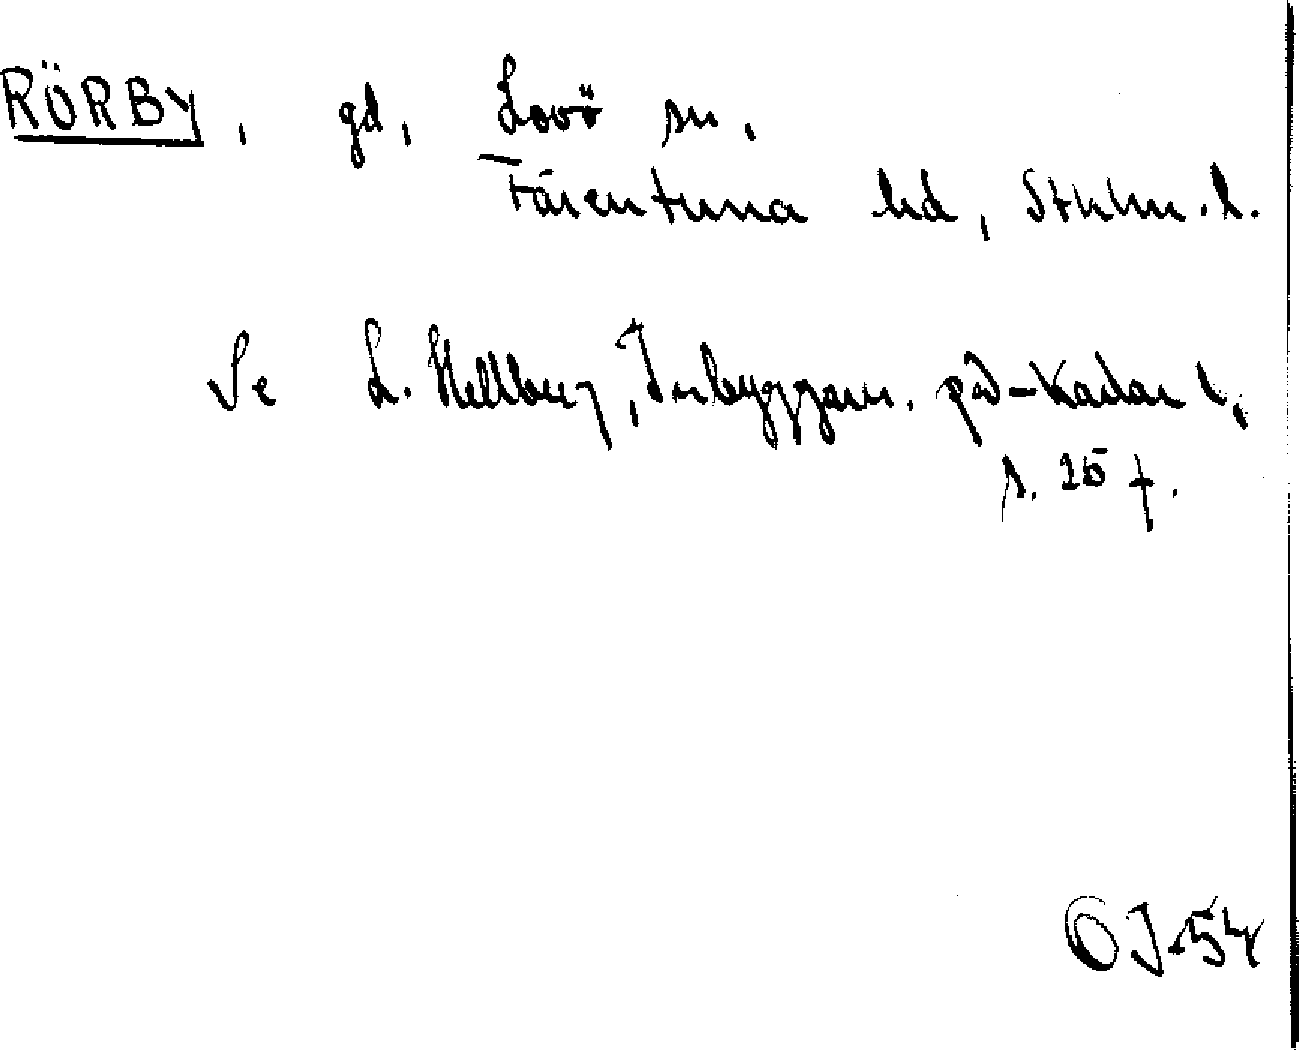 RÖRBY, gd, Lovö sn,
Färentuna hd, Sthlm. l.
Se L. Hellberg, Inbyggarn. på -karlar b,
s. 25 f.
OJ-54